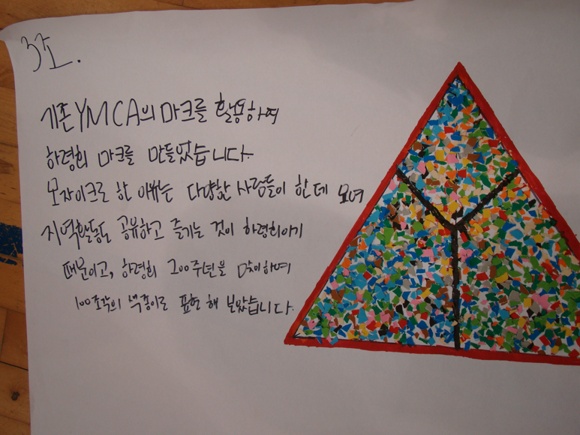 3조.
기존 YMCA의 마크를 활용하여
하령회 마크를 만들었습니다.
모자이크로 한 이유는 다양한 사람들이 한데 모여
지역활동을 공유하고 즐기는 것이 하령회이기
때문이고, 하령회 200주년을 맞이하여
100조각의 색종이로 표현해 보았습니다.